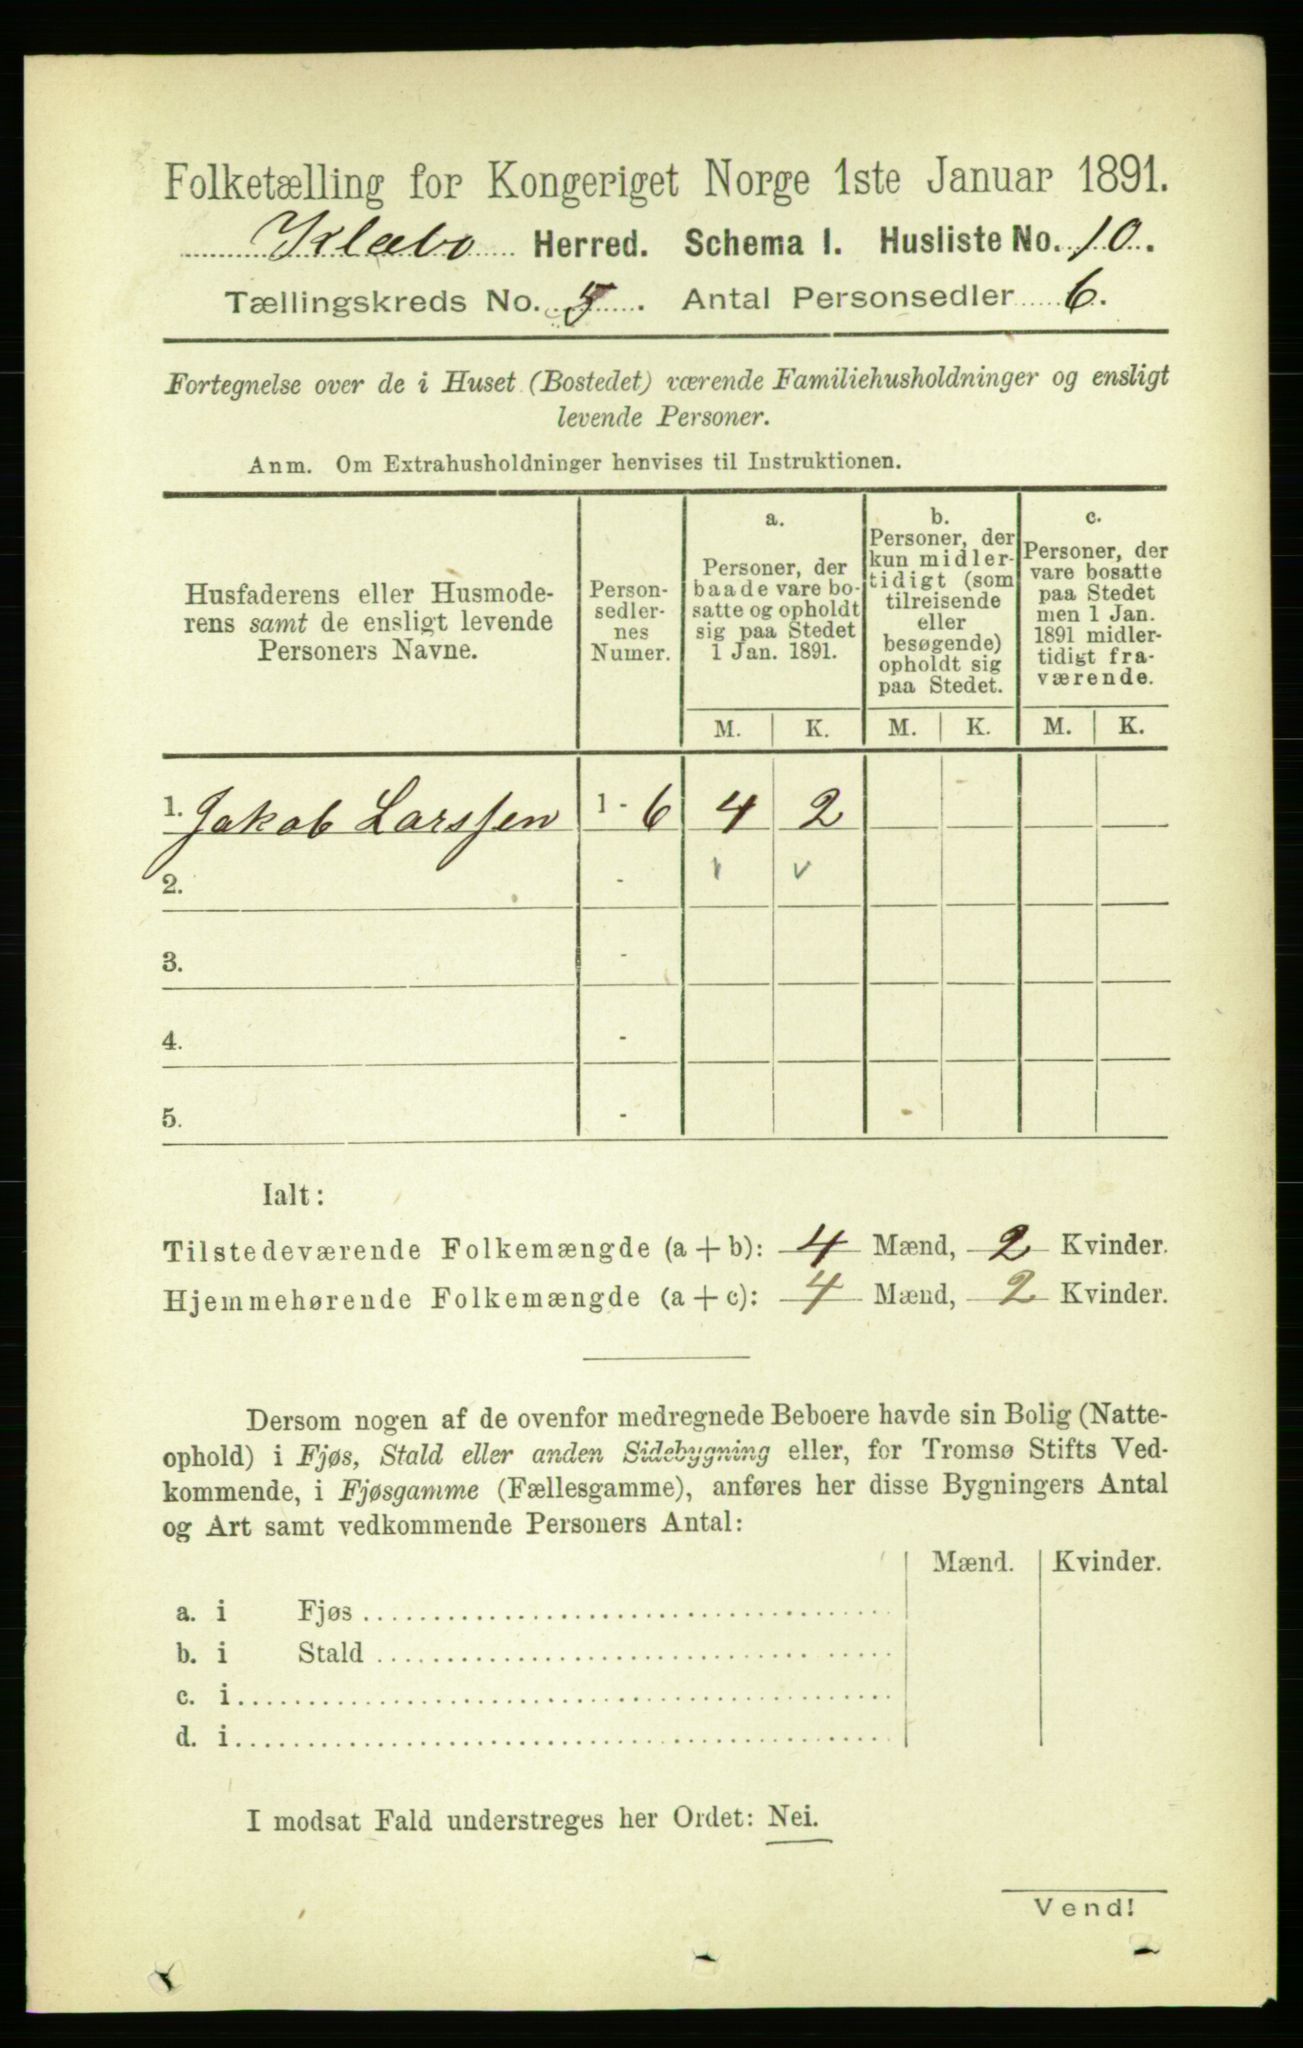 Folketælling for Kongeriget Norge 1ste Januar 1891.
Klæbo Herred. Schema I. Husliste No. 10.
Tællingskreds No. 5. Antal Personsedler 6.
Fortegnelse over de i Huset (Bostedet) værende Familiehusholdninger og ensligt
levende Personer.
Anm. Om Extrahusholdninger henvises til Instruktionen.
Husfaderens eller Husmode-
rens samt de ensligt levende
Personers Navne.
Person-
sedler-
nes
Numer.
a.
Personer, der
baade vare bo-
satte og opholdt
sig paa Stedet
1 Jan. 1891.
b.
Personer, der
kun midler-
tidigt (som
tilreisende
eller
besøgende)
opholdt sig
paa Stedet.
c.
Personer, der
vare bosatte
paa Stedet
men 1 Jan.
1891 midler-
tidigt fra-
værende.
M. K. M. K. M. K.
1. Jakob Larssen 1 - 6 4 2
2. - v
3. -
4. -
5. -
Ialt:
Tilstedeværende Folkemængde (a + b): 4 Mænd, 2 Kvinder.
Hjemmehørende Folkemængde (a + c): 4 Mænd, 2 Kvinder.
Dersom nogen af de ovenfor medregnede Beboere havde sin Bolig (Natte-
ophold) i Fjøs, Stald eller anden Sidebygning eller, for Tromsø Stifts Ved-
kommende, i Fjøsgamme (Fællesgamme), anføres her disse Bygningers Antal
og Art samt vedkommende Personers Antal:
Mænd. Kvinder.
a. i Fjøs
b. i Stald
c. i
d. i
I modsat Fald understreges her Ordet: Nei.
Vend!